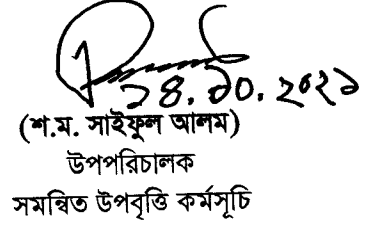 ১৪.১০.২০২১
(শ.ম. সাইফুল আলম)
উপপরিচালক
সমন্বিত উপবৃত্তি কর্মসূচি